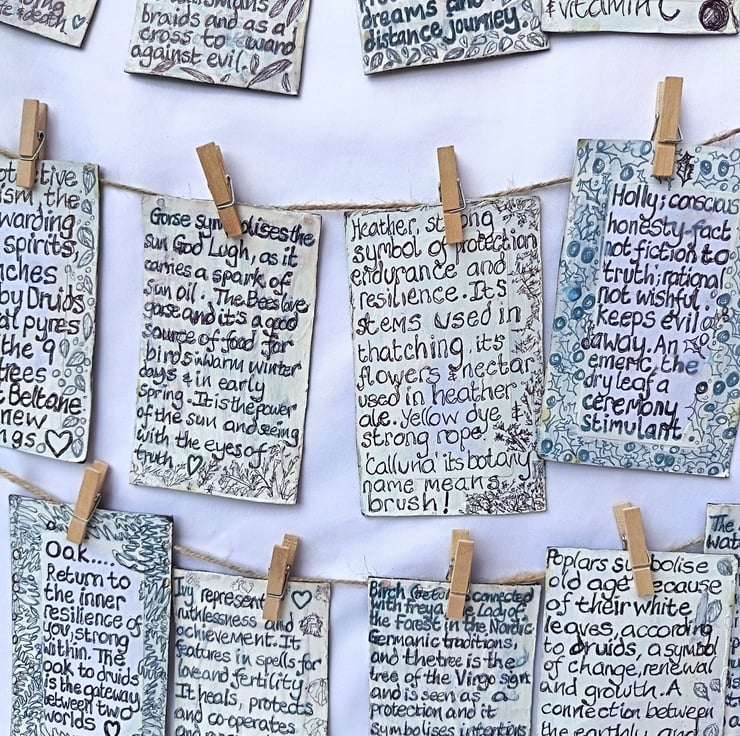 e & death
braids and as a
cross to ward
against evil.
dreams and
distance journey.
& vitamin C
ism, the
warding
spirits,
by Druids
pyres
the 9
trees
Beltane
new
Gorse symbolises the
sun God Lugh, as it
carries a spark of
sun oil. The Bees love
gorse and it's a good
source of food for
birds in warm winter
days & in early
spring. It is the power
of the sun and seeing
with the eyes of
truth
Heather, strong
symbol of protection
endurance and
resilience. Its
stems used in
thatching, its
flowers & nectar
used in heather
ale. yellow dye &
strong rope.
'Calluna' its botany
name means
brush!
Holly; conscious
honesty-fact
not fiction to
truth; rational
not wishful.
keeps evil
away. An
emeric, the
dry leaf a
ceremony
stimulant.
Oak....
Return to
the inner
resilience of
you, strong
within. The
oak to druids
is the gateway
between two
worlds
Ivy represent
ruthlessness and
achievement. It
features in spells for
love and fertility.
It heals, protects
and co-operates
Birch connected
with freya, the Lady of
the Forest in the Nordic
Germanic traditions,
and the tree is the
tree of the Virgo sign
and is seen as a
protection and it
symbolises intention
Poplars symbolise
old age because
of their white
leaves, according
to druids, a symbol
of change, renewal
and growth. A
connection between
the earthly and
The